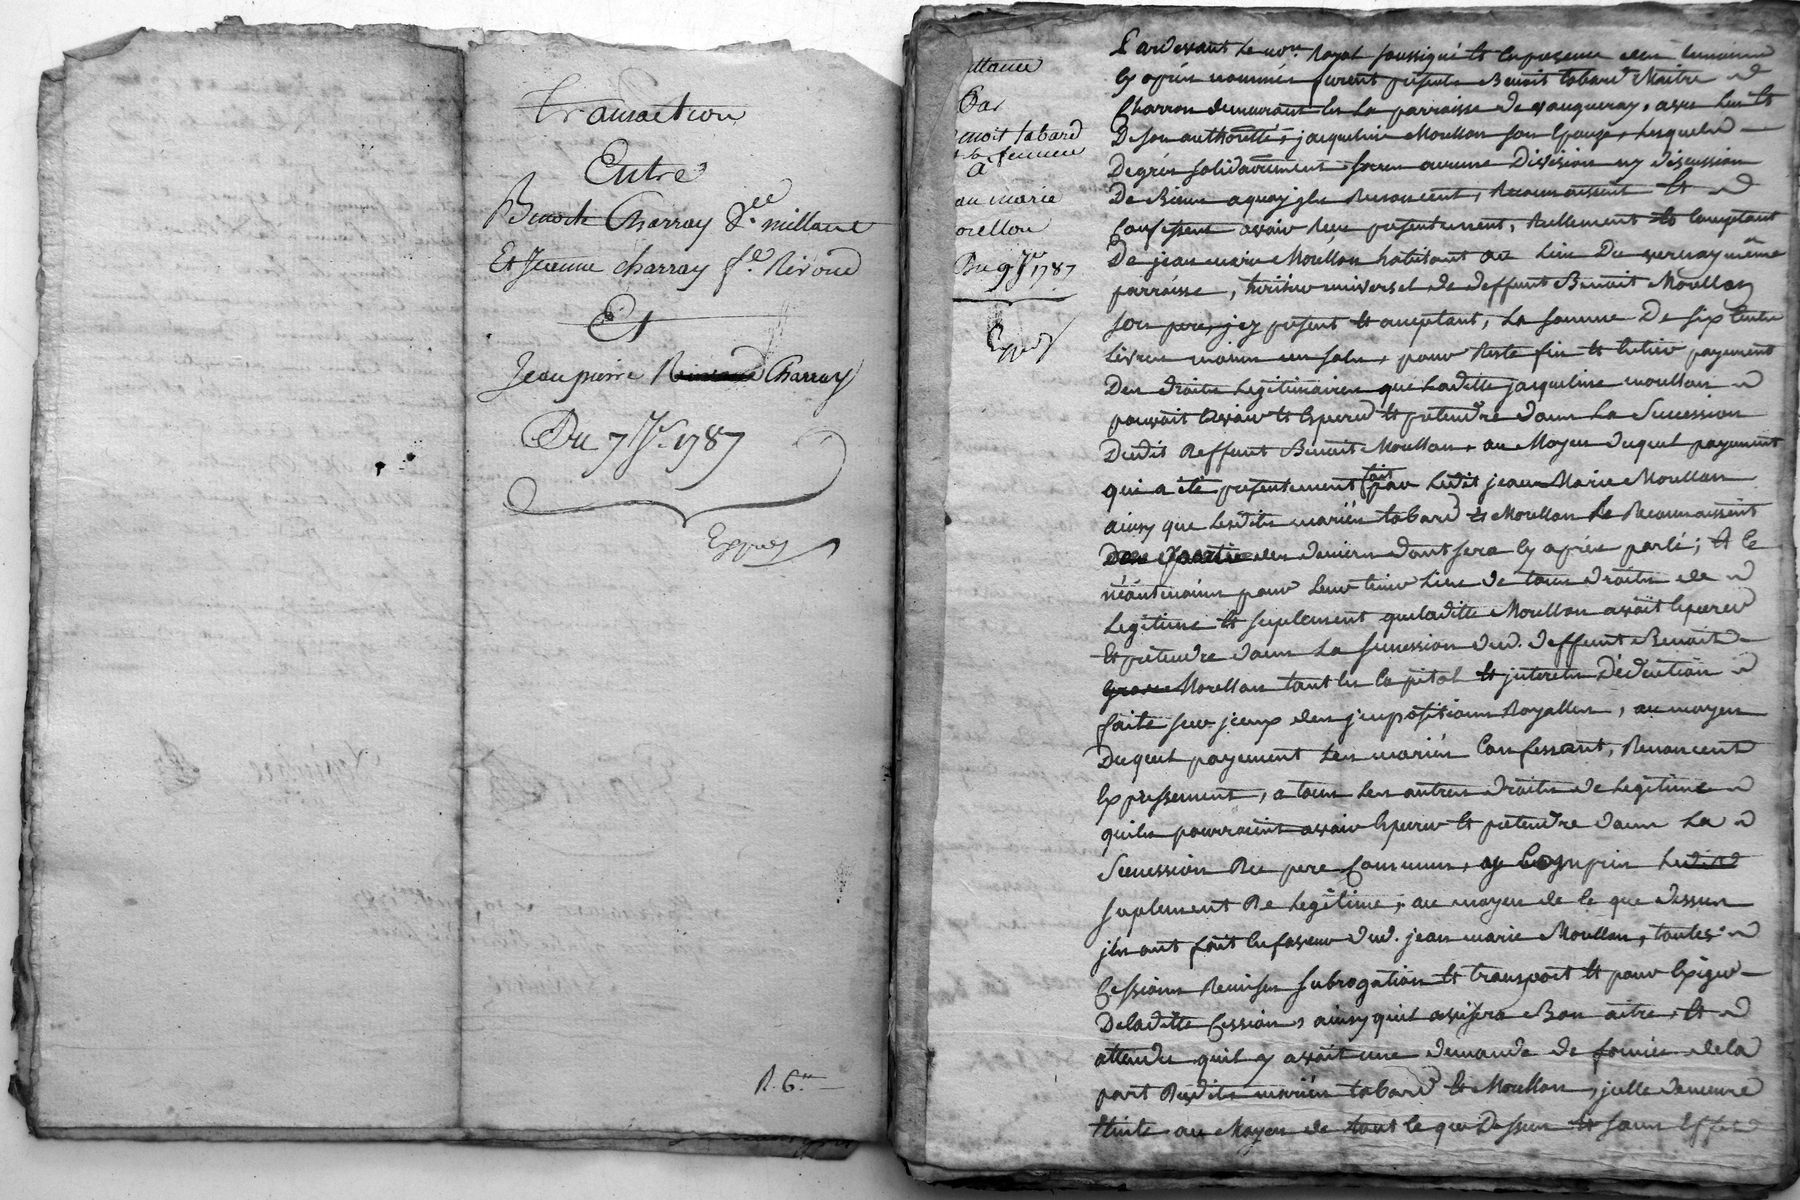 transaction
Entre
Benoite Charray f.e millane
Et Jeanne charray f.e Rivoud
Et
Jean pierre Charray
Du 7 7.re 1787
R. 6.
ittance
Par
enoit tabard
& sa femme
a
an marie
orellon
Du 9 7re 1787
Pardevant le no.re Royal soussigné et en presence des temoins
cy après nommés furent présents Benoit tabard Maitre
Charron demeurant en la parroisse de vaugneray, avec lui et
De son authorité, jacqueline Morellon son Epouse, Lesquels
Degrés solidairement sans aucune Division ny discussion
De Biens aquoy jls Renoncent, Reconnoissent et
Confessent avoir Recu presentement, Reellement et Comptant
De jean marie Morellon habitant au lieu Du vernay même
parroisse, héritier universel de deffunt Benoit Morellon
son pere, jcy présent et acceptant, La somme De six Cents
Livres moins un sols, pour Reste fin et Entier payement
Des droits Legitimaires que Laditte jacqueline morellon
pouvoit avoir et Esperer et pretendre dans La Succession
Dudit Deffunt Benoit Morellon, au Moyen duquel payement
qui a été présentement fait par Ledit jean Marie Morellon
ainsy que Lesdits mariés tabard et Morellon Le Reconnoissent
des deniers dont sera cy après parlé; Et Ce
néantmoins pour Leur tenir Lieu de tous droits de
Legitime et suplement que laditte Morellon avoit Esperer
Et prétendre dans La succession dud. deffunt Benoit
Morellon tant En Capital et jnterets Déduction
faite sur jceux des jmpositions Royalles, au moyen
Duquel payement Les mariés Confessant, Renoncent
Expressement, a tous Les autres droits de Legitime
quils pourroient avoir Esperer et pretendre dans La
Succession Du pere Commun, y Compris Ledit
suplement De Legitime; au moyen de Ce que dessus
jls ont fait En faveur dud. jean marie Morellon, toutes
Cessions Remises subrogation et transport et pour Exiger
De laditte Cession, ainsy quil avisera Bon aitre, et
attendu quil y avoit une demande de formée de la
part Desdits mariés tabard et Morellon, jcelle demeure
Eteinte au Moyen de tout Ce que Dessus et sans Effet